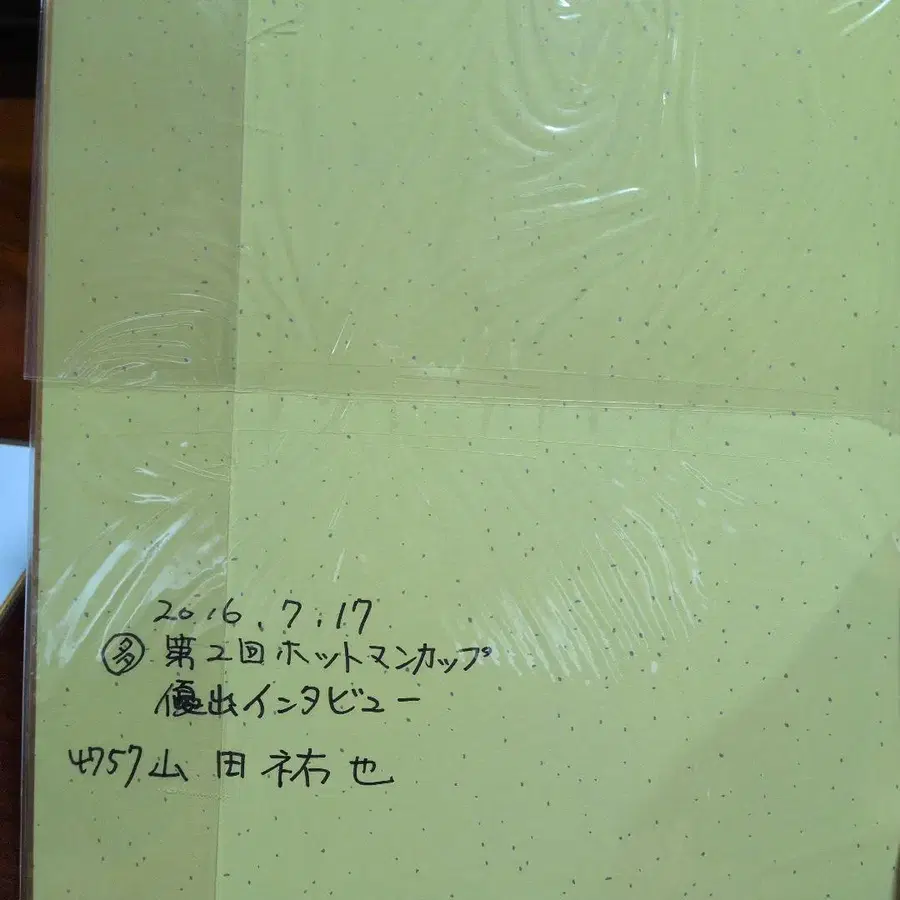 2016.7.17
㊕ 第2回ホットマンカップ
優出インタビュー
4757 山田祐也